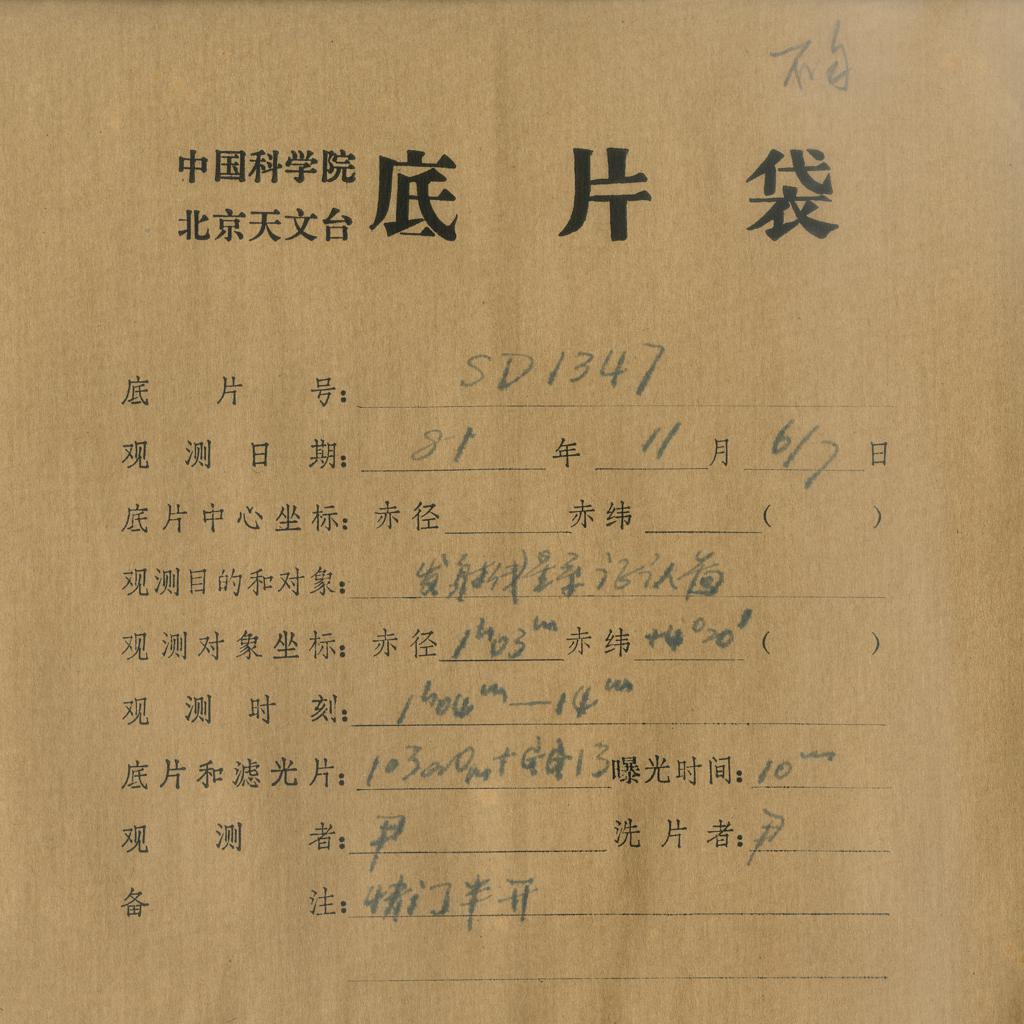 中国科学院
北京天文台 底片袋
底片号: SD1347
观测日期: 81年 11月 6/7日
底片中心坐标: 赤径 赤纬 ( )
观测目的和对象: 发射线星系证认
观测对象坐标: 赤径 1h03m 赤纬 +4°20′ ( )
观测时刻: 1h04m—14m
底片和滤光片: 103aO 13 曝光时间: 10m
观测者: 尹 洗片者: 尹
备注: 门半开